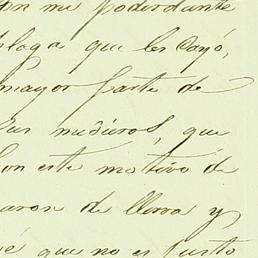 con mi poderdante
plaga que les cayó,
mayor parte de
sus maduros, que
con este motivo de
aron de lleva y
que no es justo